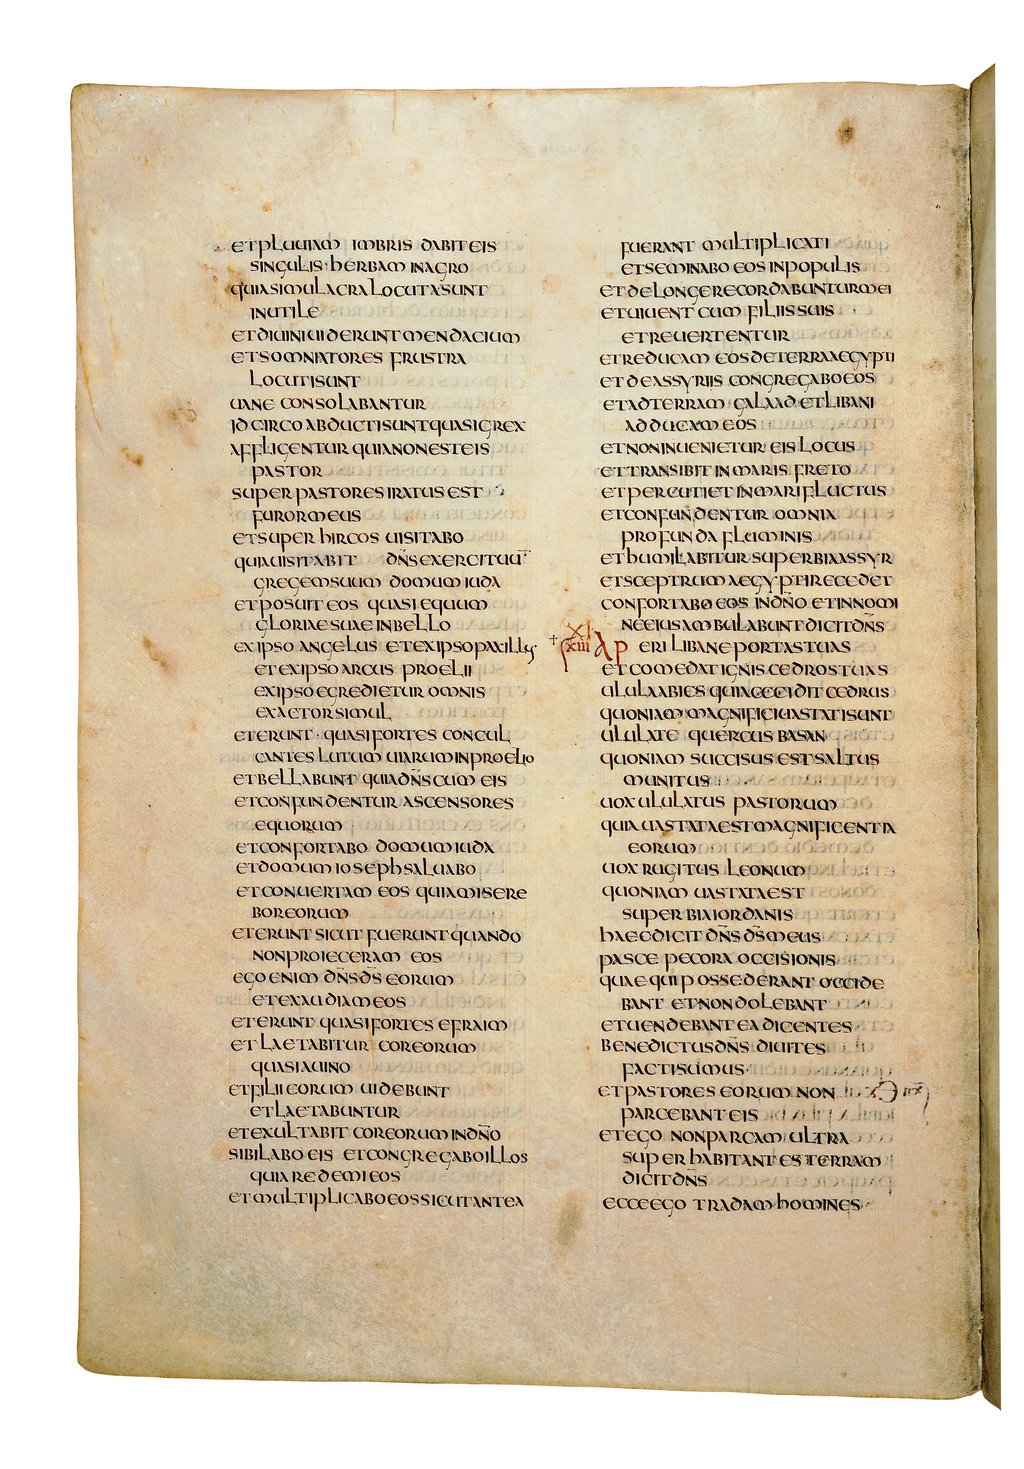 et pluuiam imbris dabit eis
singulis · herbam in agro
quia simulacra locuta sunt
inutile
et diuini uiderunt mendacium
et somniatores frustra
locuti sunt
uane consolabantur
idcirco abducti sunt quasi grex
affligentur quia non est eis
pastor
super pastores iratus est
furor meus
et super hircos uisitabo
quia uisitabit dn̄s exercituū
gregem suum domum iuda
et posuit eos quasi equum
gloriae suae in bello
ex ipso angelus et ex ipso paxillus
et ex ipso arcus proelii
ex ipso egredietur omnis
exactor simul
et erunt · quasi fortes concul
cantes lutum uiarum in proelio
et bellabunt quia dn̄s cum eis
et confundentur ascensores
equorum
et confortabo domum iuda
et domum ioseph saluabo
et conuertam eos quia misere
bor eorum
et erunt sicut fuerunt quando
non proieceram eos
ego enim dn̄s ds̄ eorum
et exaudiam eos
et erunt quasi fortes efraim
et laetabitur cor eorum
quasi a uino
et filii eorum uidebunt
et laetabuntur
et exultabit cor eorum in dn̄o
sibilabo eis et congregabo illos
quia redemi eos
et multiplicabo eos sicut antea
fuerant multiplicati
et seminabo eos in populis
et de longe recordabuntur mei
et uiuent cum filiis suis
et reuertentur
et reducam eos de terra aegypti
et de assyriis congregabo eos
et ad terram · galaad et libani
adducam eos
et non inuenietur eis locus
et transibit in maris freto
et percutiet in mari fluctus
et confundentur omnia
profunda fluminis
et humiliabitur superbia assyr
et sceptrum aegypti recedet
confortabo eos in dn̄o et in nomi
ne eius ambulabunt dicit dn̄s
xiii Aperi libane portas tuas
et comedat ignis cedros tuas
ulula abies quia cecidit cedrus
quoniam magnifici uastati sunt
ululate quercus basan
quoniam succisus est saltus
munitus
uox ululatus pastorum
quia uastata est magnificentia
eorum
uox rugitus leonum
quoniam uastata est
superbia iordanis
haec dicit dn̄s ds̄ meus
pasce pecora occisionis
quae qui possederant occide
bant et non dolebant
et uendebant ea dicentes
benedictus dn̄s diuites
facti sumus
et pastores eorum non
parcebant eis
et ego non parcam ultra
super habitantes terram
dicit dn̄s
ecce ego tradam homines